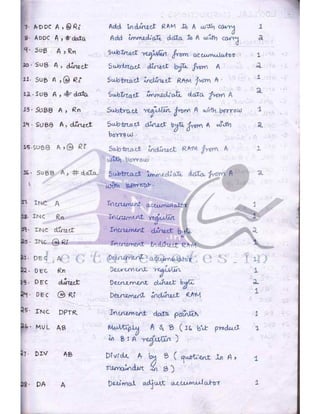 7. ADDC A, @Ri Add indirect RAM to A with carry 1
8. ADDC A, # data Add immediate data to A with carry 2
9. SUB A, Rn Subtract register from accumulator 1
10. SUB A, direct Subtract direct byte from A 2
11. SUB A, @ Ri Subtract indirect RAM from A 1
12. SUB A, # data Subtract immediate data from A 2
13. SUBB A, Rn Subtract register from A with borrow 1
14. SUBB A, direct Subtract direct byte from A with 2
borrow
15. SUBB A, @ Ri Subtract indirect RAM from A 1
with borrow
16. SUBB A, # data Subtract immediate data from A 2
with borrow
17. INC A Increment accumulator 1
18. INC Rn Increment register 1
19. INC direct Increment direct byte 2
20. INC @ Ri Increment indirect RAM 1
21. DEC A Decrement accumulator 1
22. DEC Rn Decrement register 1
23. DEC direct Decrement direct byte 2
24. DEC @ Ri Decrement indirect RAM 1
25. INC DPTR Increment data pointer 1
26. MUL AB Multiply A & B (16 bit product 1
in B:A register)
27. DIV AB Divide A by B (quotient in A, 1
remainder in B)
28. DA A Decimal adjust accumulator 1